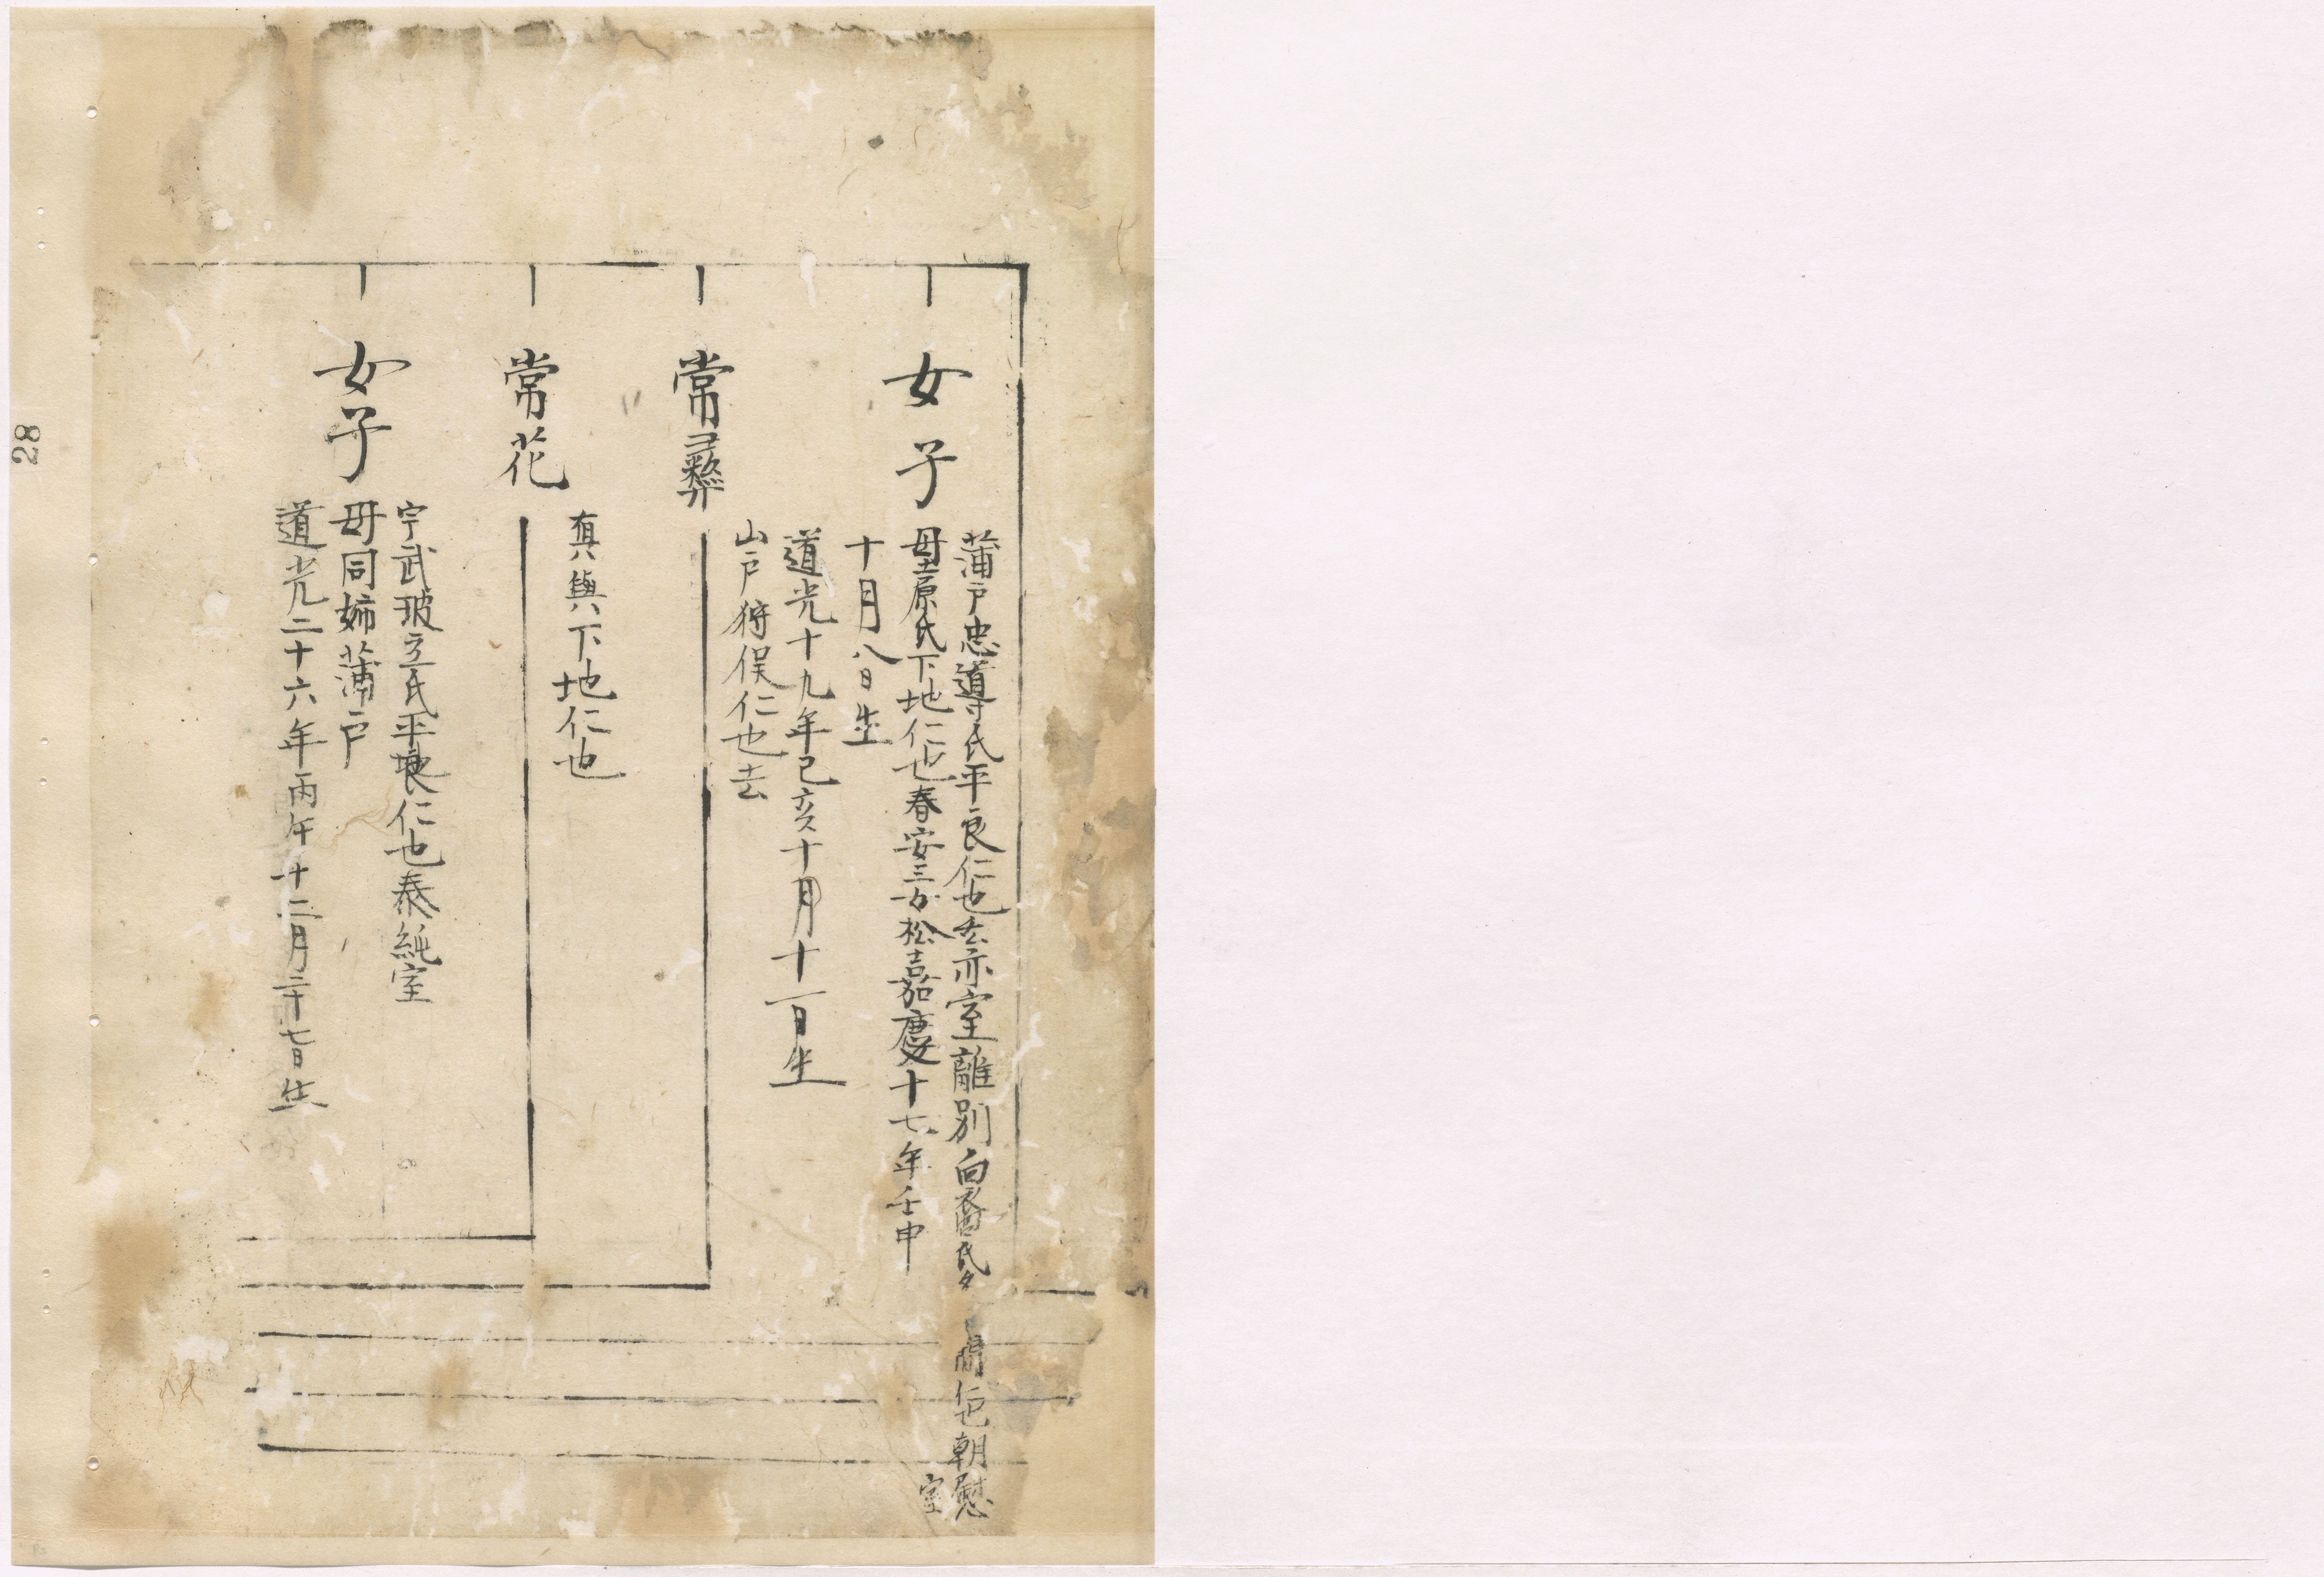 女子
蒲戸忠導氏平良仁也 亦室離別白裔氏
仁也朝慰
室
母土原氏下地仁也春安三 松嘉慶十七年壬申
十月八日生
常彛
道光十九年己亥十月十一日生
山戸狩俣仁也
常花
真與下地仁也
女子
宇武 氏平良仁也泰純室
母同姉蒲戸
道光二十六年丙午十二月二十七日生
28